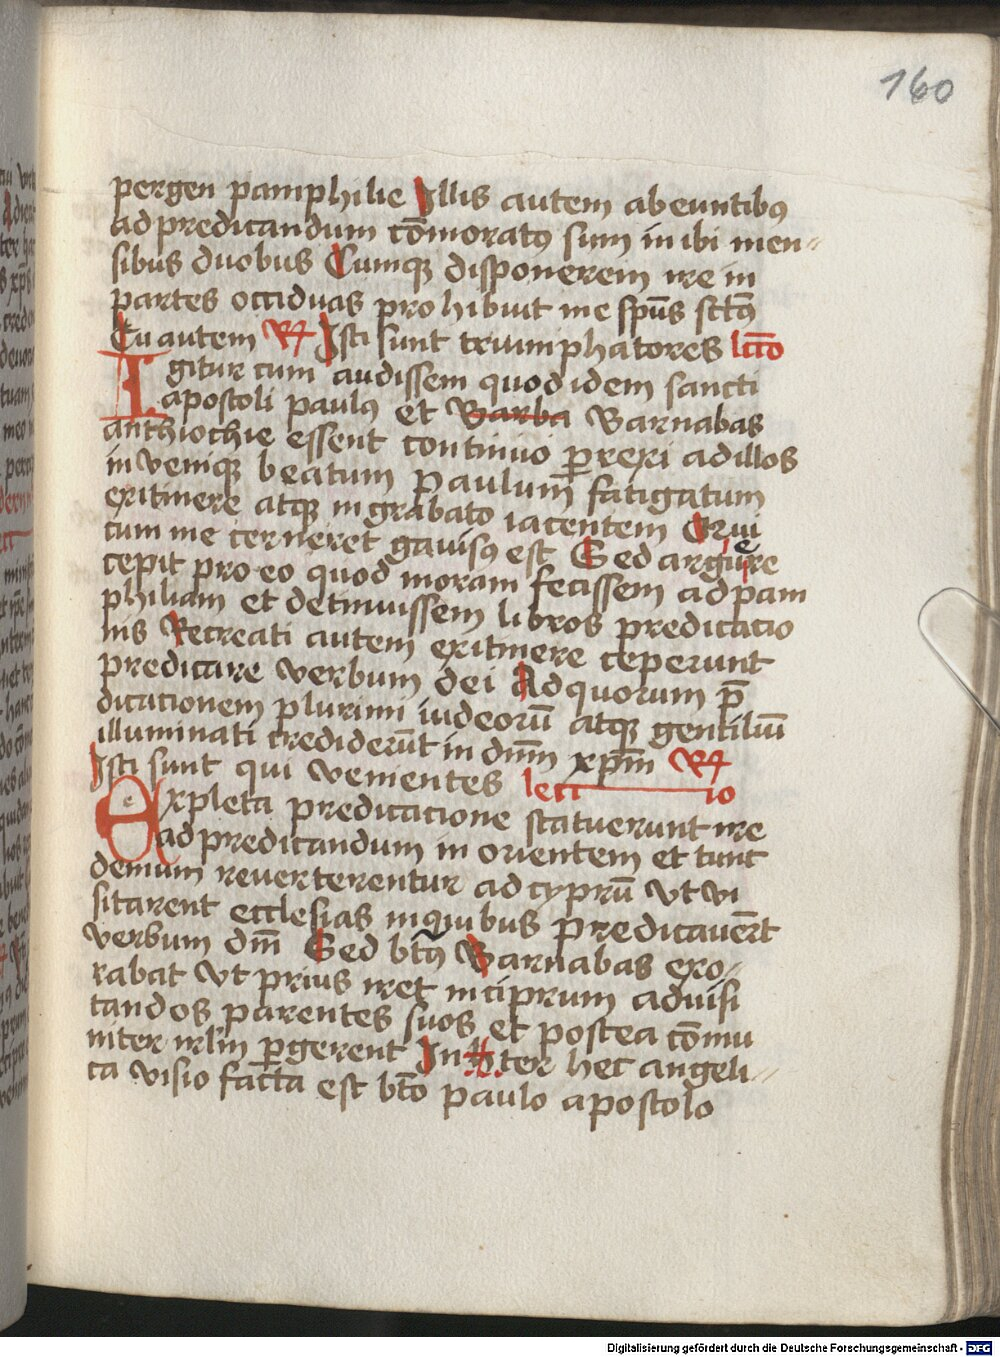 160
pergen pamphilie Illis autem abeuntibꝯ
ad predicandum cōmoratꝯ sum in ibi men⸗
sibus duobus Cumqꝫ disponerem ire in
partes occiduas prohibuit me sp̄us sctꝯ
Tu autem R℣ Isti sunt triumphatores lcc̄o
Igitur cum audissem quod idem sancti
apostoli paulꝯ et Barba Barnabas
anthiochie essent continuo ꝑrexi ad illos
inveniqꝫ beatum Paulum fatigatum
ex itinere atqꝫ in grabato iacentem Qui
cum me cerneret gavisꝯ est Sed arguere
cepit pro eo quod moram fecissem ad pam
philiam et detinuissem libros predicacio
nis Recreati autem ex itinere ceperunt
predicare verbum dei Ad quorum p̄
dicacionem plurimi iudeorū atqꝫ gentiliū
illuminati crediderūt in dn̄m xp̄m R℣
Isti sunt qui venientes lectio
Expleta predicacione statuerunt ire
ad predicandum in orientem et tunc
demum reverterentur ad cyprū vt vi
sitarent ecclesias in quibus predicauer̄t
verbum dn̄i Sed bt̄ꝯ Barnabas exo⸗
rabat vt prius iret in ciprum ad visi
tandos parentes suos et postea cōmu
niter irl̄m ꝑgerent Inter hec angeli⸗
ca visio facta est bt̄o paulo apostolo
Digitalisierung gefördert durch die Deutsche Forschungsgemeinschaft - DFG